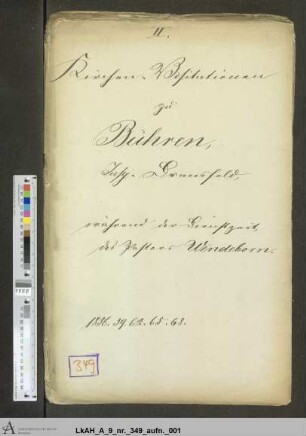 II.
Kirchen-Visitationen
zu
Bühren,
Insp. Dransfeld,
während der Dienstzeit
des Pastors Wendeborn.
1856. 59. 62. 65. 68.
349
LkAH_A_9_nr._349_aufn._001